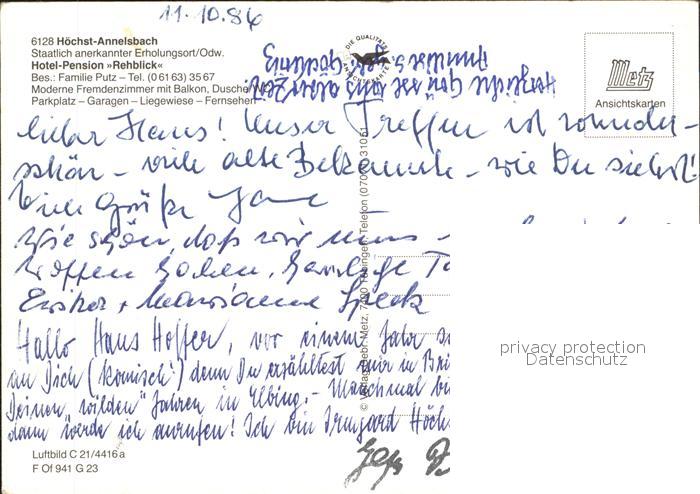 11.10.86
6128 Höchst-Annelsbach
Staatlich anerkannter Erholungsort/Odw.
Hotel-Pension »Rehblick«
Bes.: Familie Putz – Tel. (06163) 3567
Moderne Fremdenzimmer mit Balkon, Dusche/WC
Parkplatz – Garagen – Liegewiese – Fernsehen
DIE QUALITÄTS
ANSICHTSKARTE
Metz
Ansichtskarten
Herzliche Grüße aus alter Zeit
Annelies geb.
lieber Hans! Unser Treffen ist wunder-
schön – viele alte Bekannte – wie Du siehst!
Viele Grüße
Wie schön, daß wir uns
treffen haben, Herzliche
+ Marianne
Hallo Hans Hoffer, vor einem Jahr
an Dich (komisch) denn Du erzähltest mir in
Deinen "wilden" Jahren in Elbing. – Manchmal
dann werde ich anrufen! Ich bin Irmgard
© Verlag Gebr. Metz, 7400 Tübingen, Telefon
privacy protection
Datenschutz
Luftbild C 21/4416 a
F Of 941 G 23